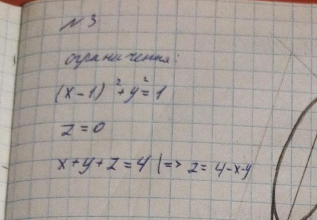 №3
ограничения:
(x-1)²+y²=1
z=0
x+y+z=4 |=> z=4-x-y